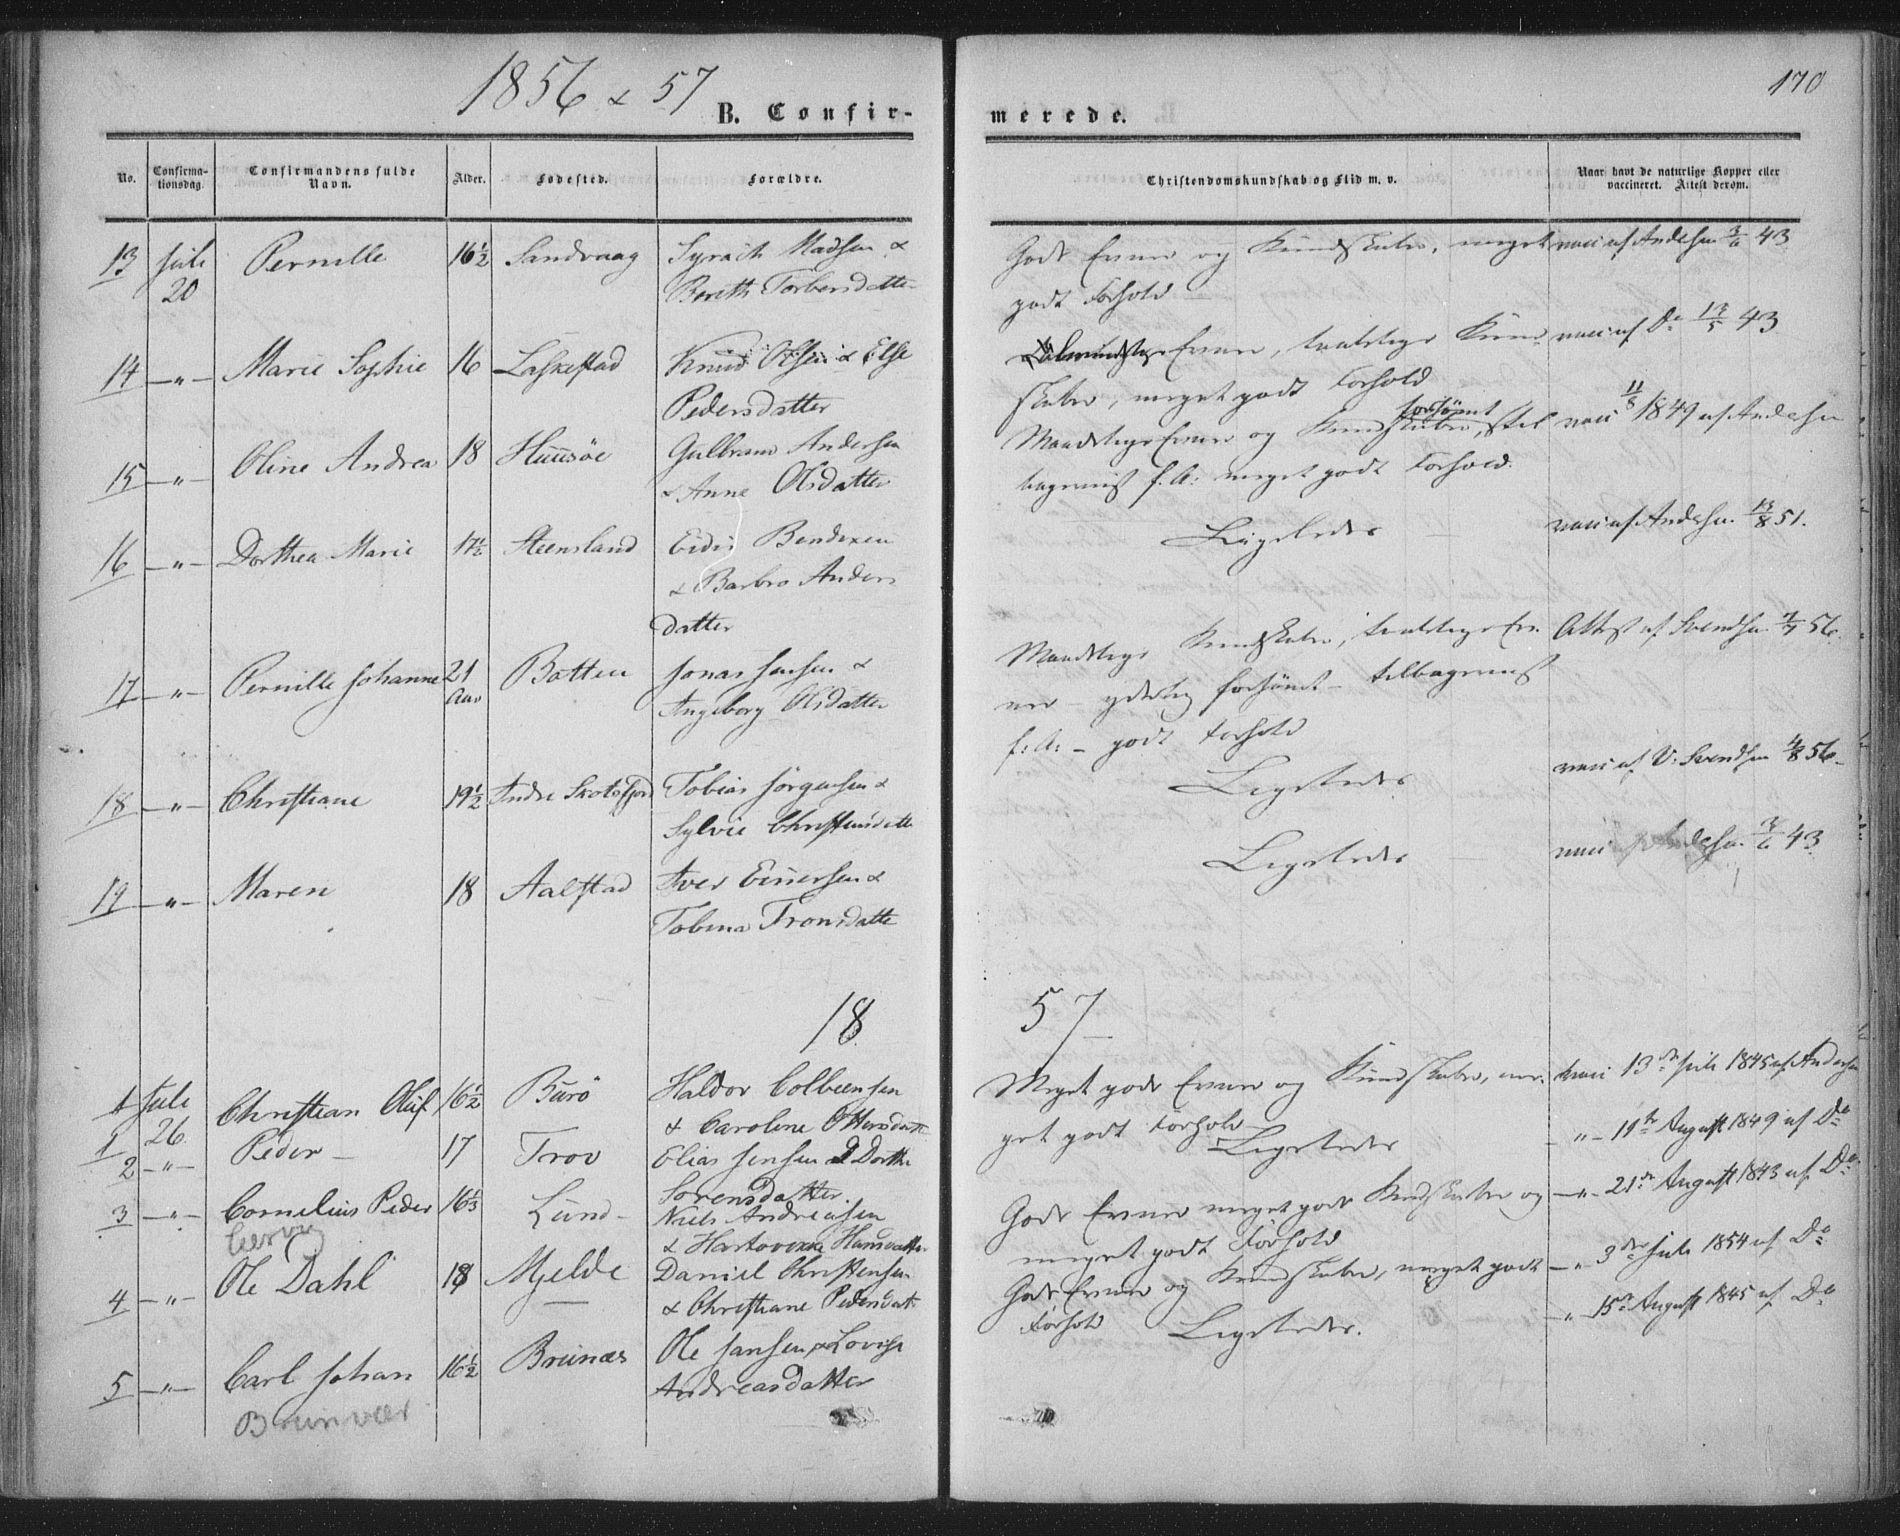 1856 & 57
170
B. Confir-
merede.
No.
Confirma-
tionsdag.
Confirmandens fulde
Navn.
Alder.
Fødested.
Forældre.
Christendomskundskab og Flid m. v.
Naar havt de naturlige Kopper eller
vaccineret. Attest derom.
13 Juli 20 Pernille 16½ Sandvaag Syrach Madsen &
Bereth Torbersdatter
Gode Evner og Kundskaber, meget
godt Forhold
vacc: af Andersen 3/6 43
14 —"— Marie Sophie 16 Laskestad Knud Olsen & Else
Pedersdatter
Evner, taalelige Kund-
skaber, meget godt Forhold
vacc: af Do 13/5 43
15 —"— Oline Andrea 18 Huusöe Gulbran Andersen
& Anne Olsdatter
Maadelige Evner og Kundskaber, forsömt til
bageviist f. A: meget godt Forhold.
vacc 11/8 1849 af Andersen
16 —"— Dorthea Marie 17½ Steensland Eidis Bendixen
& Barbro Anders
datter
Ligeledes
vacc: af Andersen 13/8 51.
17 —"— Pernille Johanne 21 Aar Botten Jonas Jensen &
Ingeborg Olsdatter
Maadelige Kundskaber, taalelige Ev-
ner – yderlig forsömt – tilbageviist
f: A: – godt Forhold
Attest af Svendsen 7/7 56.
18 —"— Christiane 19½ Indre Skotsfjord Tobias Jörgensen &
Sylvie Christensdatter
Ligeledes
vacc af V. Svendsen 4/8 56
19 —"— Maren 18 Aalstad Iver Einersen &
Tobina Tronsdatter
Ligeledes
vacc Andersen 3/6 43
18
57
1 Juli 26 Christian Oluf 16½ Burö Haldor Colbeensen
& Caroline Ottersdatter
Meget gode Evner og Kundskaber, me-
get godt Forhold
vacc 13de Juli 1845 af Andersen
1
2 —"— Peder — 17 Trov Elias Jensen & Dorthe
Sorensdatter
Ligeledes
—"— 11te August 1849 af Do
3 —"— Cornelius Peder 16½ Lund Niels Andreasen
& Hartovikka Hansdatter
Gode Evner meget gode Kundskaber og
meget godt Forhold
—"— 21de August 1843 af Do
4 —"— Ole Dahl 18 Mjelde Daniel Christensen
& Christiane Pedersdatt
Gode Evner og Kundskaber, meget godt
Forhold
—"— 3die Juli 1854 af Do
5 —"— Carl Johan 16½ Brunæs Ole Jansen & Lovise
Andreasdatter
Brunvær
Ligeledes.
—"— 15de August 1845 af Do